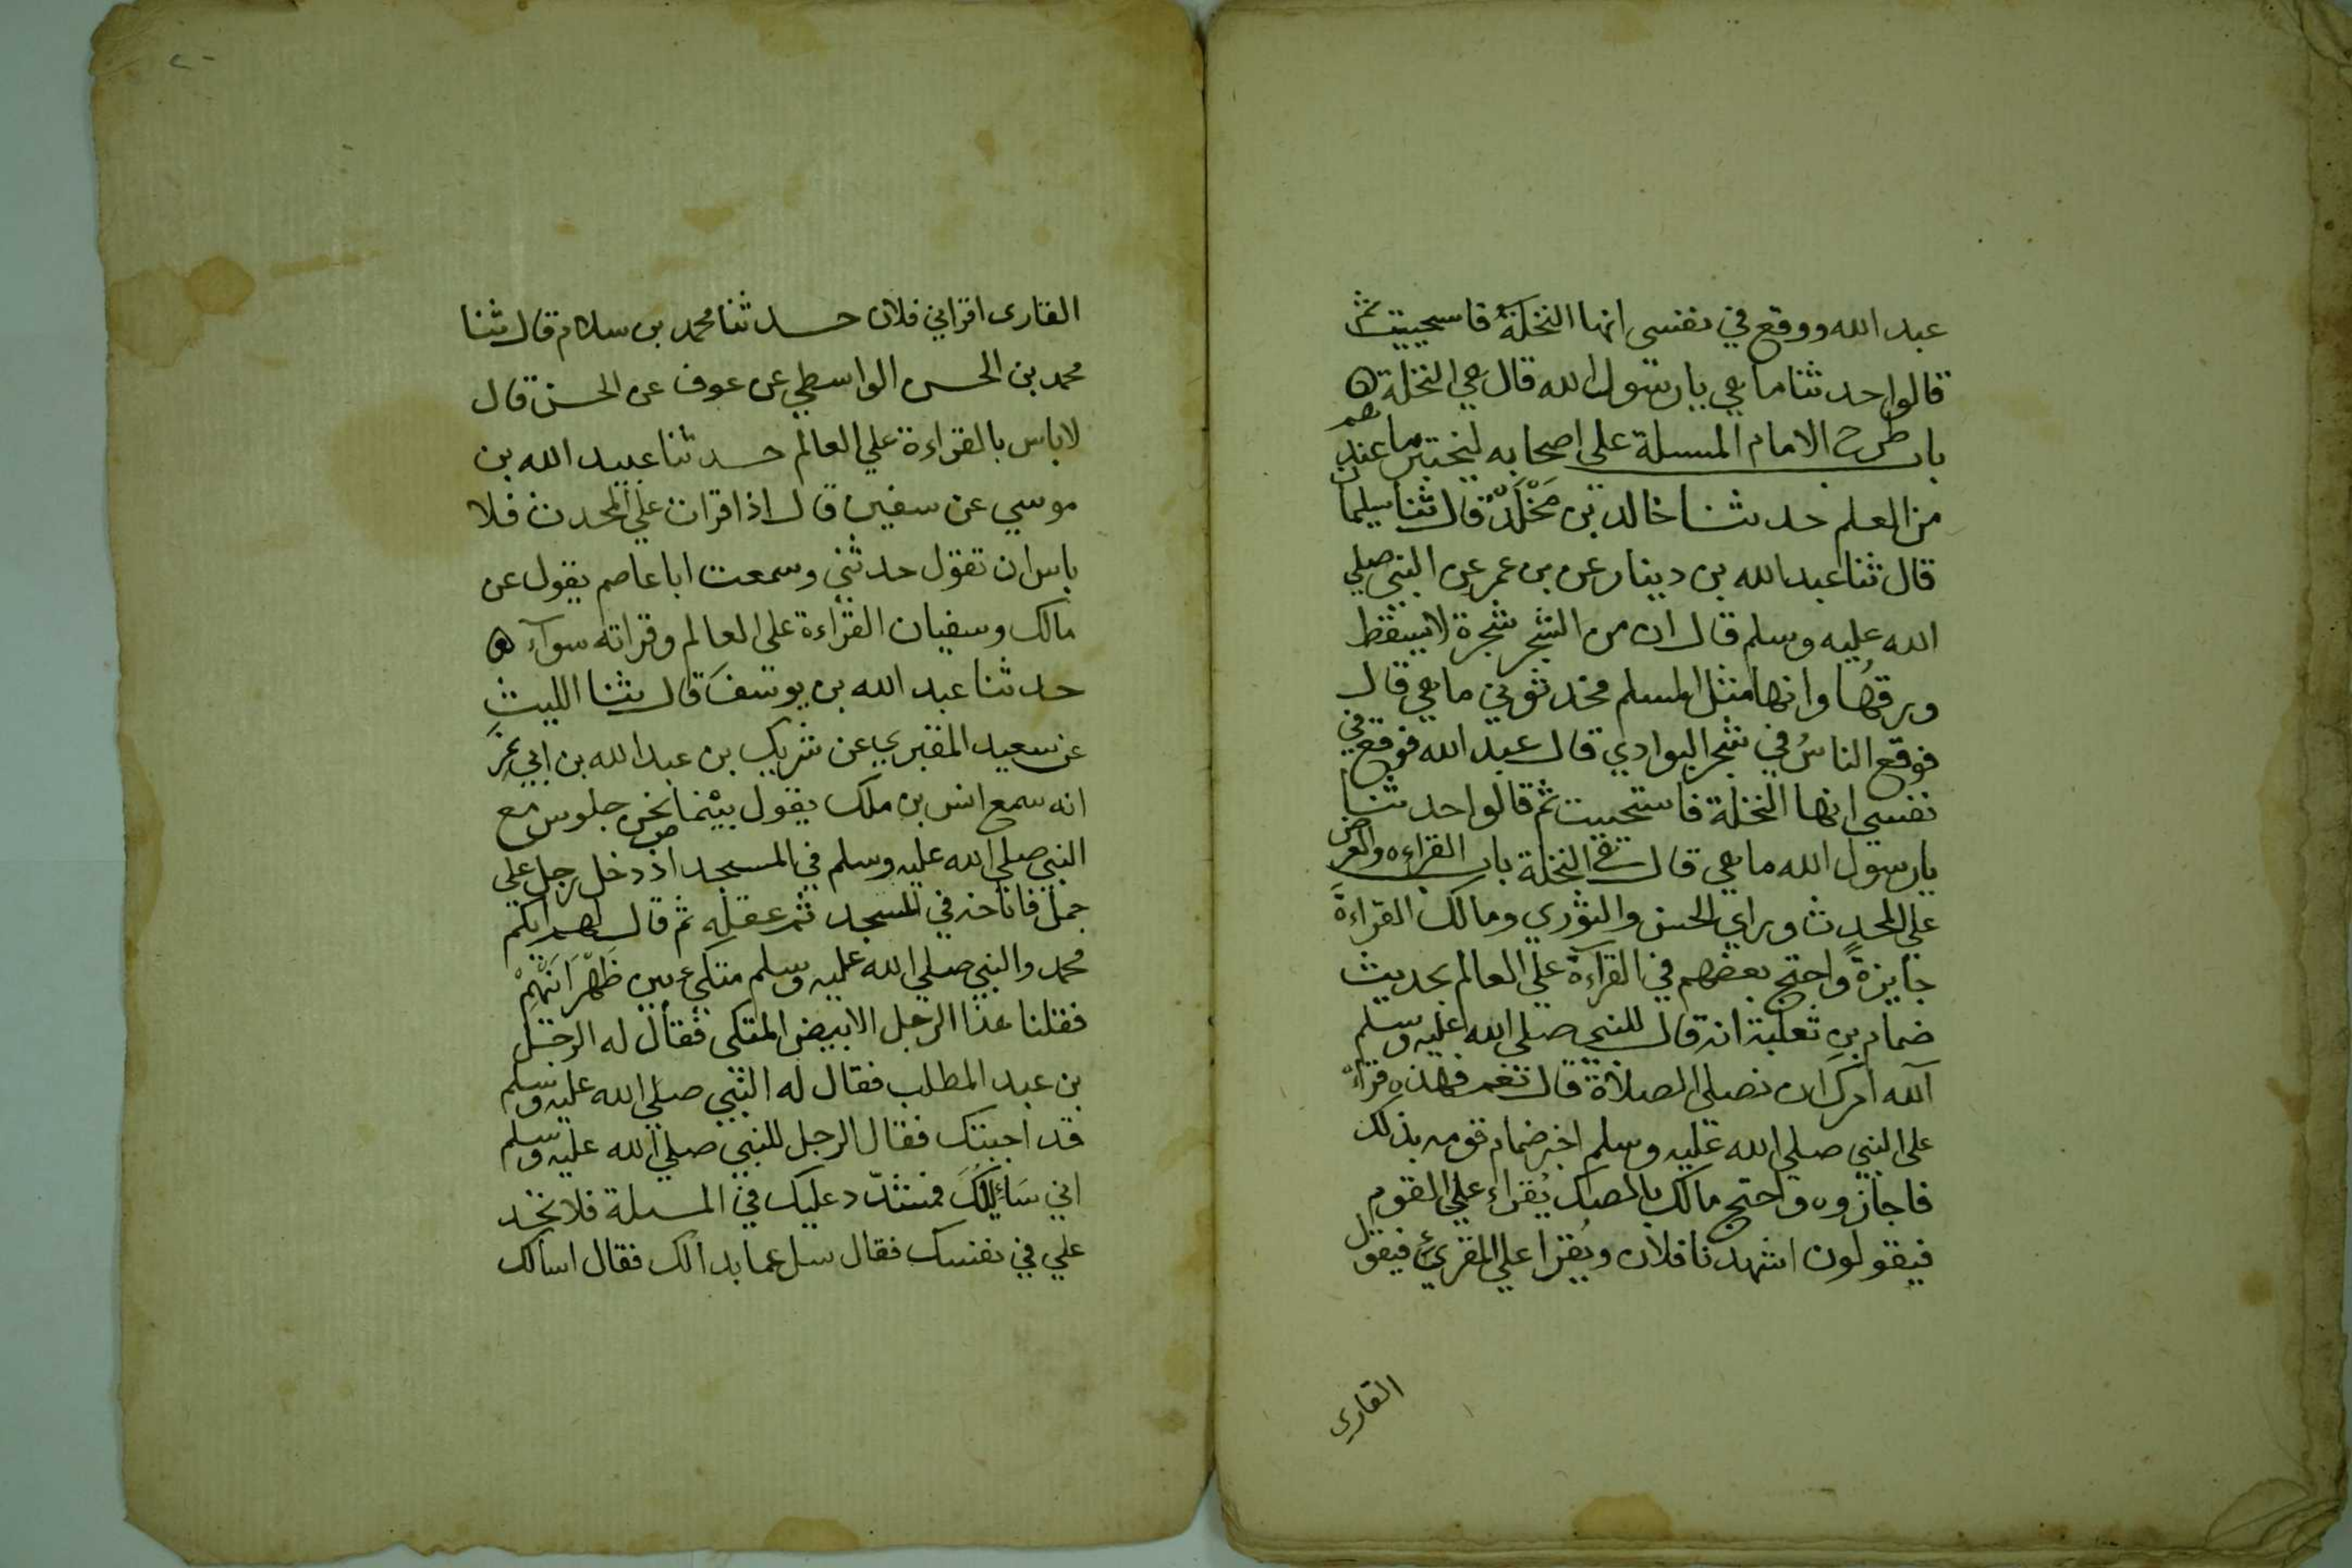 عبد الله ووقع في نفسى انها النخلةُ فاستحييت ثم
قالوا حدثنا ما هي يا رسول الله قال هي النخلة ه
باب طرح الامام المسلة على اصحابه ليختبر ما عندهم
من العلم حدثنا خالد بن مَخْلَدْ قال ثنا سليمان
قال ثنا عبد الله بن دينار عن بن عمر عن النبي صلي
الله عليه وسلم قال ان من الشجر شجرة لا يسقط
ورقهُا وانها مثل المسلم فحدثوني ما هي قال
فوقع الناسُ في شجر البوادي قال عبد الله فوقع في
نفسي انها النخلة فاستحييت ثم قالوا حدثنا
يا رسول الله ما هي قال هي النخلة باب القراءه والعرض
علي المحدث وراي الحسن والثوري ومالك القراءةَ
جايزةً واحتج بعضهم في القراءة علي العالم بحديث
ضمام بن ثعلبة انه قال للنبي صلي الله عليه وسلم
آلله امرك ان نصلي الصلاة قال نعم فهذه قراءة
على النبي صلي الله عليه وسلم اخبر ضمام قومه بذلك
فاجازوه واحتج مالك بالصك يُقراء علي القوم
فيقولون اشهدنا فلان ويُقرا علي المقرئ فيقول
القارى
القارى اقراني فلان حدثنا محمد بن سلام قال ثنا
محمد بن الحسن الواسطي عن عوف عن الحسن قال
لا باس بالقراءة علي العالم حدثنا عبيد الله بن
موسي عن سفين قال اذا قرات علي المحدث فلا
باس ان تقول حدثني وسمعت ابا عاصم يقول عن
مالك وسفيان القراءة على العالم وقراته سوآء ه
حدثنا عبد الله بن يوسفَ قال ثنا الليث
عن سعيد المقبري عن شريك بن عبد الله بن ابي نمر
انه سمع انس بن ملك يقول بينما نحن جلوس مع
النبي صلي الله عليه وسلم في المسجد اذ دخل رجل علي
جمل فاناخه في المسجد ثم عقله ثم قال لهم ايكم
محمد والنبي صلي الله عليه وسلم متكيء بين ظَهْرَانَيْهِمْ
فقلنا هذا الرجل الابيض المتكى فقال له الرجل
بن عبد المطلب فقال له النبي صلي الله عليه وسلم
قد اجبتك فقال الرجل للنبي صلي الله عليه وسلم
اني سَائِلُكَ فمشدّد عليك في المسلة فلا تجد
علي في نفسك فقال سل عما بدا لك فقال اسالك